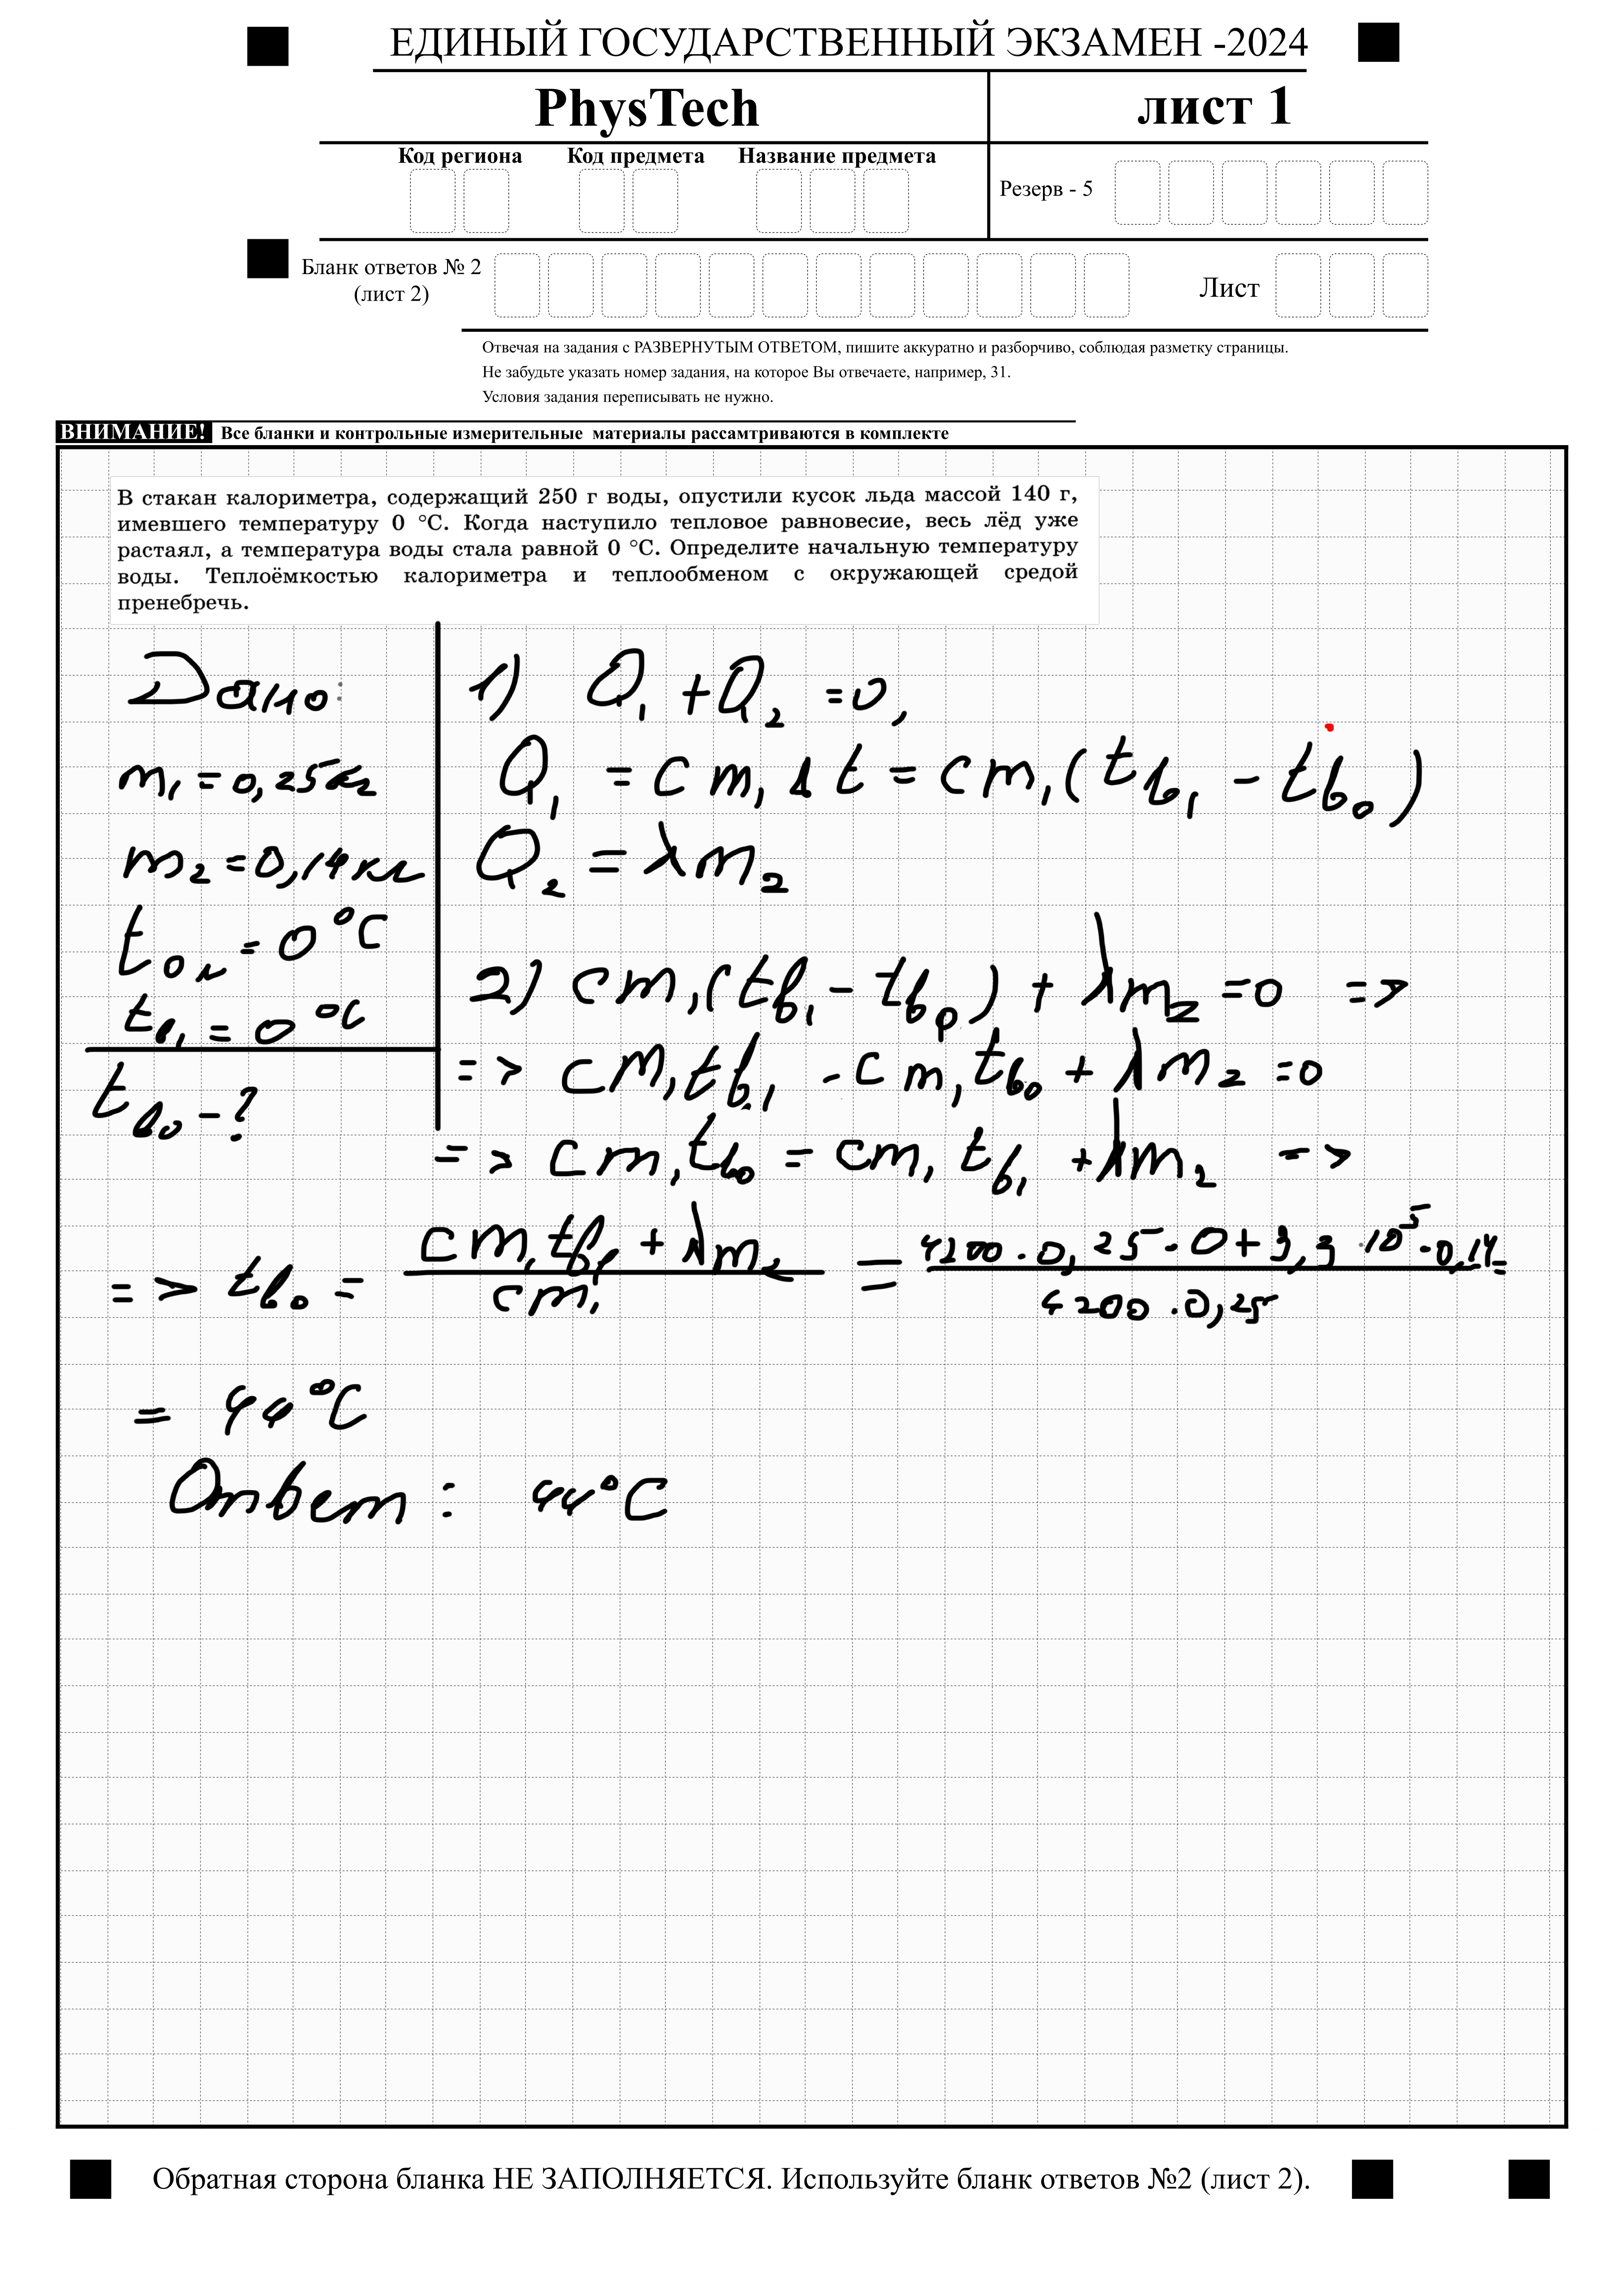 ЕДИНЫЙ ГОСУДАРСТВЕННЫЙ ЭКЗАМЕН -2024
PhysTech
лист 1
Код региона Код предмета Название предмета
Резерв - 5
Бланк ответов № 2
(лист 2)
Лист
Отвечая на задания с РАЗВЕРНУТЫМ ОТВЕТОМ, пишите аккуратно и разборчиво, соблюдая разметку страницы.
Не забудьте указать номер задания, на которое Вы отвечаете, например, 31.
Условия задания переписывать не нужно.
ВНИМАНИЕ! Все бланки и контрольные измерительные материалы рассамтриваются в комплекте
В стакан калориметра, содержащий 250 г воды, опустили кусок льда массой 140 г,
имевшего температуру 0 °С. Когда наступило тепловое равновесие, весь лёд уже
растаял, а температура воды стала равной 0 °С. Определите начальную температуру
воды. Теплоёмкостью калориметра и теплообменом с окружающей средой
пренебречь.
Дано:
m₁ = 0,25кг
m₂ = 0,14кг
t₀л = 0°C
tв₁ = 0°C
tв₀ - ?
1) Q₁ + Q₂ = 0,
Q₁ = cm₁Δt = cm₁(tв₁ - tв₀)
Q₂ = λm₂
2) cm₁(tв₁ - tв₀) + λm₂ = 0 =>
=> cm₁tв₁ - cm₁tв₀ + λm₂ = 0
=> cm₁tв₀ = cm₁tв₁ + λm₂ =>
=> tв₀ = (cm₁tв₁ + λm₂)/(cm₁) = (4200·0,25·0+3,3·10⁵·0,14)/(4200·0,25) =
= 44°C
Ответ: 44°C
Обратная сторона бланка НЕ ЗАПОЛНЯЕТСЯ. Используйте бланк ответов №2 (лист 2).